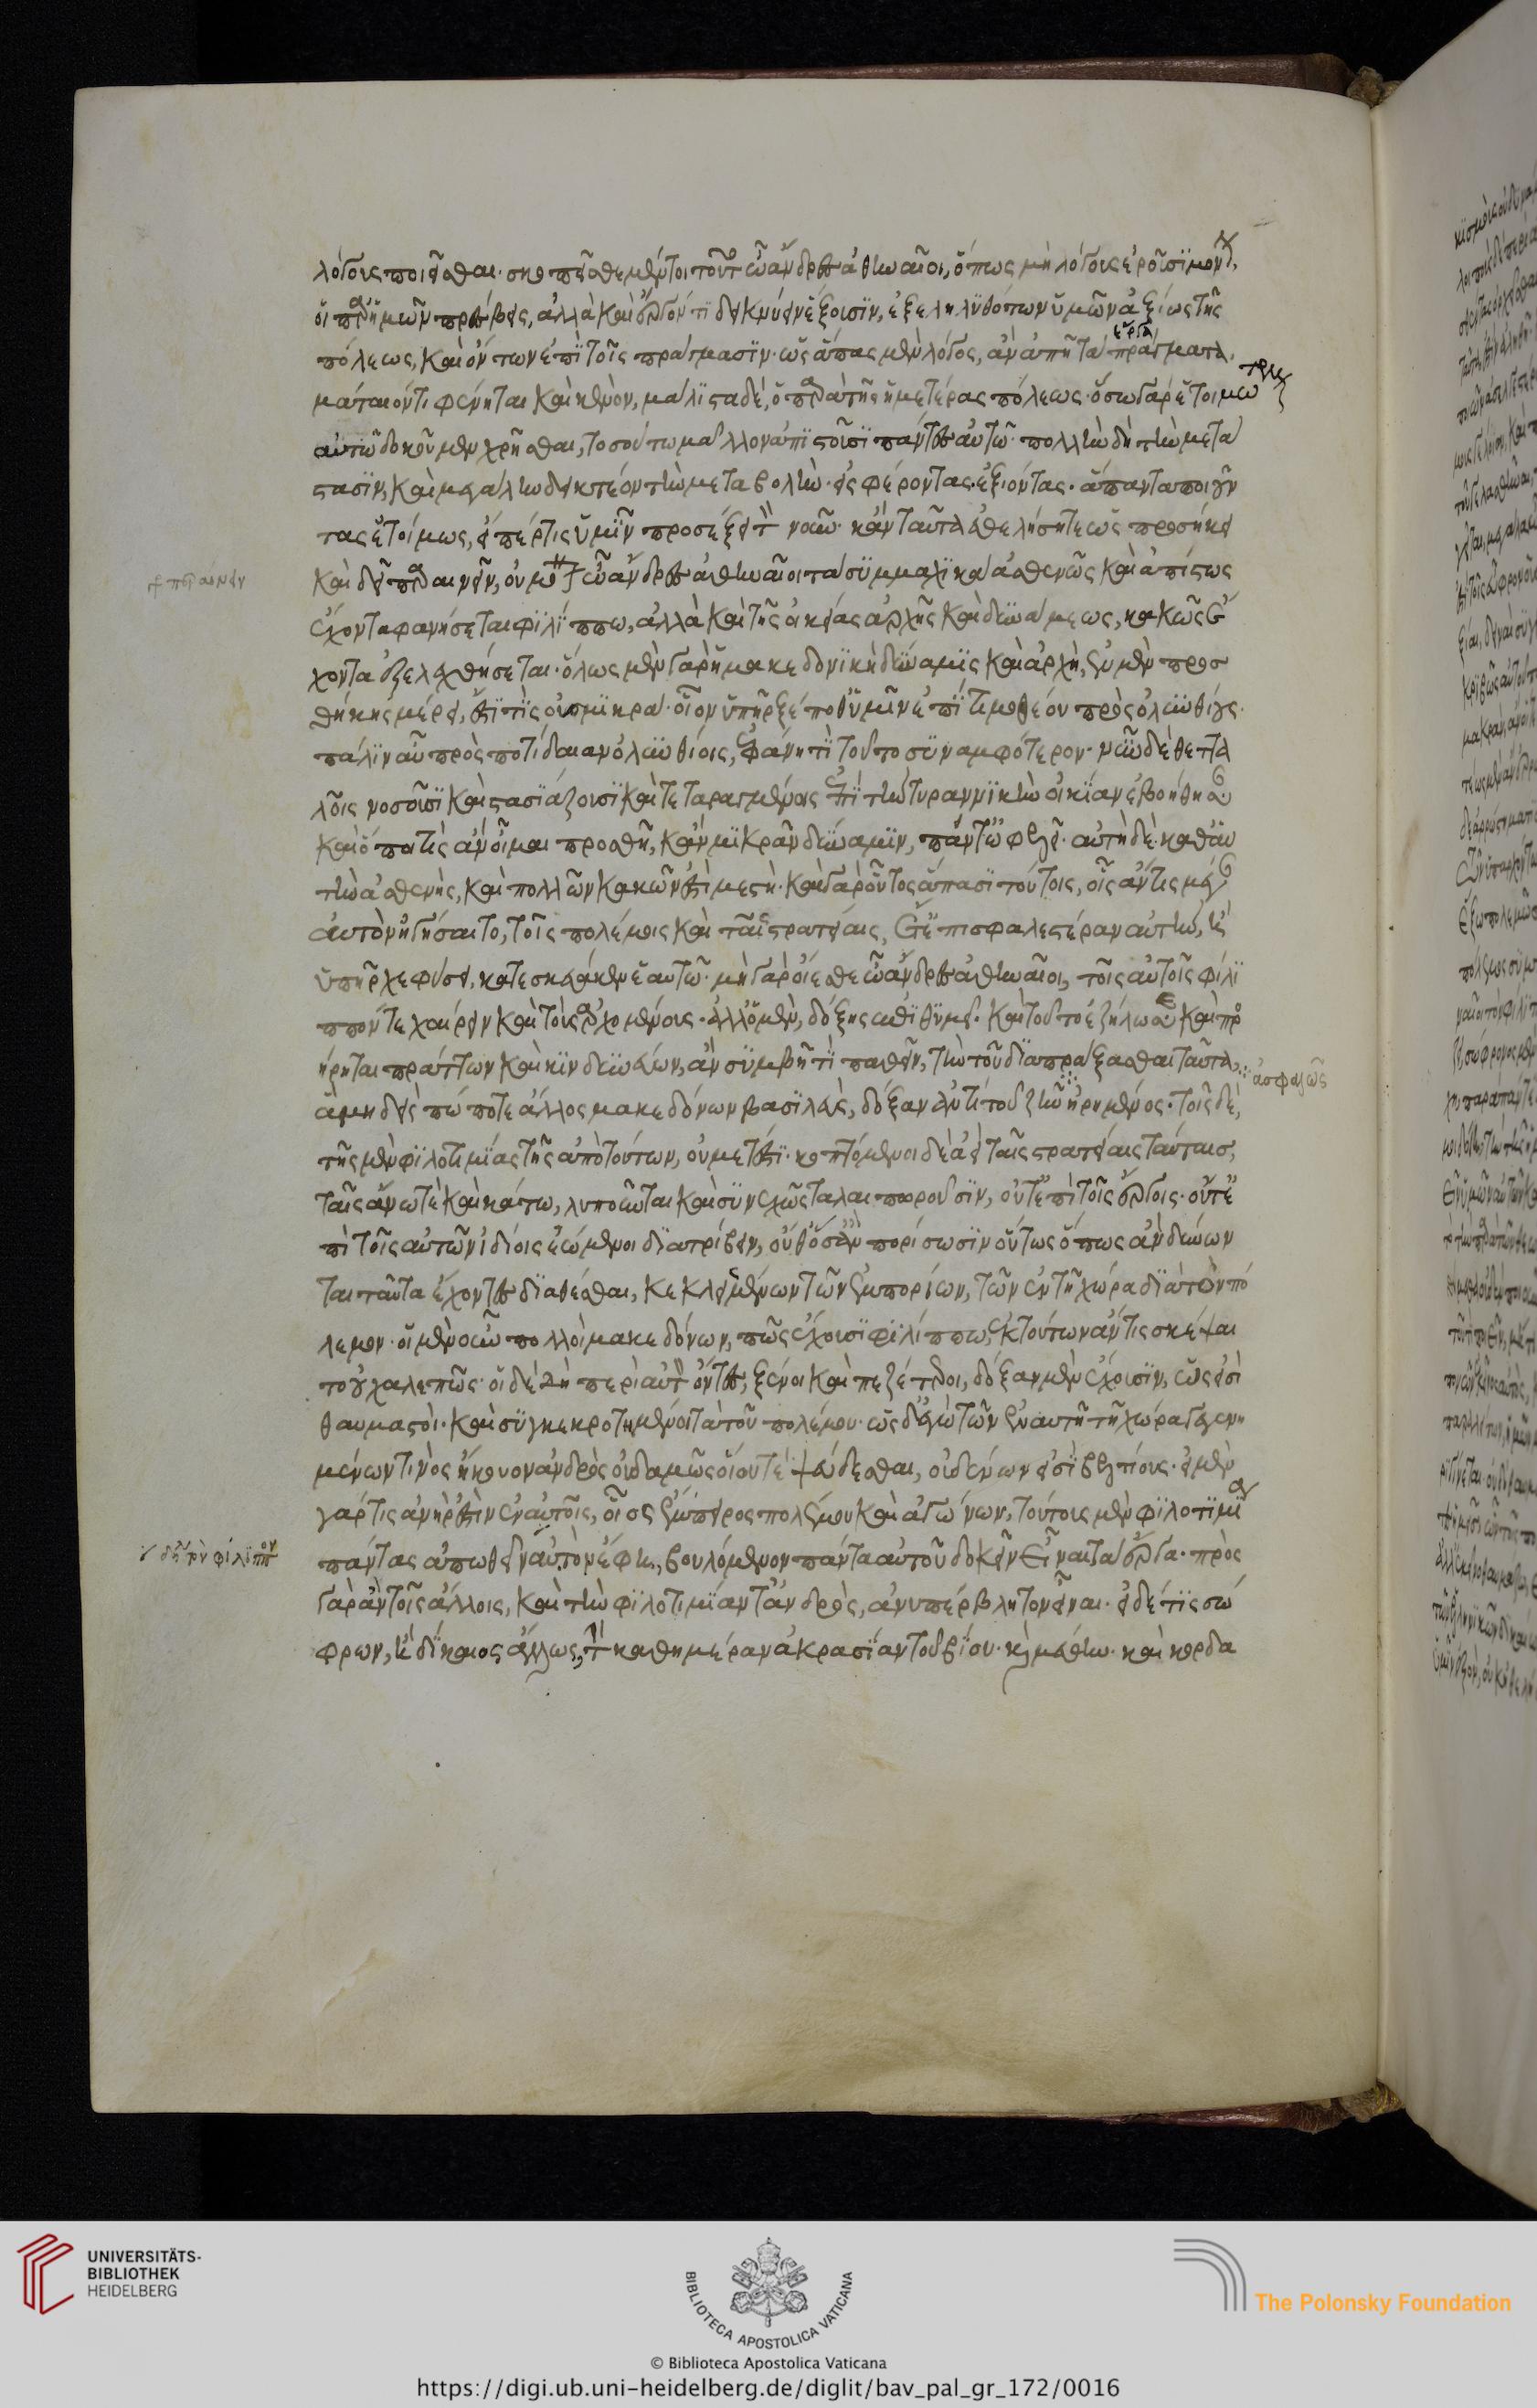 λόγους ποιεῖσθαι· σκοπεῖσθε μέντοι τοῦτ' ὦ ἄνδρες ἀθηναῖοι, ὅπως μὴ λόγους ἐροῦσι μόνον,
οἱ παρ' ἡμῶν πρέσβεις, ἀλλὰ καὶ ἔργόν τι δεικνύειν ἕξουσιν, ἐξεληλυθότων ὑμῶν ἀξίως τῆς
πόλεως, καὶ ὄντων ἐπὶ τοῖς πράγμασιν· ὡς ἅπας μὲν λόγος, ἂν ἀπῇ τὰ πράγματα,
ἔργα
μάταιόν τι φαίνηται καὶ κενὸν, μάλιστα δὲ, ὁ παρὰ τῆς ἡμετέρας πόλεως· ὅσω γὰρ ἑτοιμο
τάτω
αὐτῶ δοκοῦμεν χρῆσθαι, τοσούτω μᾶλλον ἀπιστοῦσι πάντες αὐτῶ· πολλὴν δὴ τὴν μετά
στασιν, καὶ μεγάλην δεικτέον τὴν μεταβολήν· εἰσφέροντας· ἐξιόντας· ἅπαντα ποιοῦν
τας ἑτοίμως, εἴπέρ τις ὑμῖν προσέξει τὸν νοῦν· κἂν ταῦτα ἐθελήσητε ὡς προσήκει
καὶ δεῖ περαίνειν, οὐ μόνον ὦ ἄνδρες ἀθηναῖοι τὰ συμμαχικὰ ἀσθενῶς καὶ ἀπίστως
ἔχοντα φανήσεται φιλίππω, ἀλλὰ καὶ τῆς οἰκείας ἀρχῆς καὶ δυνάμεως, κακῶς ἔ
χοντα ἐξελεγχθήσεται· ὅλως μὲν γὰρ ἡ μακεδονικὴ δύναμις καὶ ἀρχὴ, ἐν μὲν προσ
θήκης μέρει, ἐστί τις οὐ σμικρά· οἷον ὑπῆρξέ ποθ' ὑμῖν ἐπὶ τιμοθέου πρὸς ὀλυνθίους·
πάλιν αὖ πρὸς ποτίδαιαν ὀλυνθίοις, ἐφάνη τι τοῦτο συναμφότερον· νῦν δὲ θεττα
λοῖς νοσοῦσι καὶ στασιάζουσι καὶ τεταραγμένοις ἐπὶ τὴν τυραννικὴν οἰκίαν ἐβοήθησε
καὶ ὅποι τις ἂν οἶμαι προσθῇ, κἂν μικρὰν δύναμιν, πάντ' ὠφελεῖ· αὐτὴ δὲ καθ' αὑ
τὴν ἀσθενὴς, καὶ πολλῶν κακῶν ἐστὶ μεστή· καὶ γὰρ οὗτος ἅπασι τούτοις, οἷς ἄν τις μέγαν
αὐτὸν ἡγήσαιτο, τοῖς πολέμοις καὶ ταῖς στρατείαις, ἔτ' ἐπισφαλεστέραν αὐτὴν, ἢ
ὑπῆρχε φύσει, κατεσκεύακεν ἑαυτῶ· μὴ γὰρ οἴεσθε ὦ ἄνδρες ἀθηναῖοι, τοῖς αὐτοῖς φίλι
ππόν τε χαίρειν καὶ τοὺς ἀρχομένους· ἀλλ' ὁ μὲν, δόξης ἐπιθυμεῖ· καὶ τοῦτο ἐζήλωκε καὶ προ
ήρηται πράττων καὶ κινδυνεύων, ἂν συμβῇ τι παθεῖν, τὴν τοῦ διαπράξασθαι ταῦτα
ἃ μηδεὶς πώποτε ἄλλος μακεδόνων βασιλεὺς, δόξαν ἀντὶ τοῦ ζῆν ᾑρημένος· τοῖς δὲ,
τῆς μὲν φιλοτιμίας τῆς ἀπὸ τούτων, οὐ μέτεστι· κοπτόμενοι δὲ ἀεὶ ταῖς στρατείαις ταύταις,
ταῖς ἄνω τὲ καὶ κάτω, λυποῦνται καὶ συνεχῶς ταλαιπωροῦσιν, οὔτ' ἐπὶ τοῖς ἔργοις· οὔτ' ἐ
πὶ τοῖς αὑτῶν ἰδίοις ἐώμενοι διατρίβειν, οὔθ' ὅσ' ἂν πορίσωσιν οὕτως ὅπως ἂν δύνων
ται ταῦτα ἔχοντες διαθέσθαι, κεκλειμένων τῶν ἐμπορίων, τῶν ἐν τῇ χώρα διὰ τὸν πό
λεμον· οἱ μὲν οὖν πολλοὶ μακεδόνων, πῶς ἔχουσι φιλίππω, ἐκ τούτων ἄν τις σκέψαι
το οὐ χαλεπῶς· οἱ δὲ δὴ περὶ αὐτὸν ὄντες, ξένοι καὶ πεζέταιροι, δόξαν μὲν ἔχουσιν, ὡς εἰσὶ
θαυμαστοί· καὶ συγκεκροτημένοι τὰ τοῦ πολέμου· ὡς δ' ἐγὼ τῶν ἐν αὐτῇ τῇ χώρα γεγενη
μένων τινὸς ἤκουον ἀνδρὸς οὐδαμῶς οἵου τε ψεύδεσθαι, οὐδένων εἰσὶ βελτίους· εἰ μὲν
γάρ τις ἀνὴρ ἐστὶν ἐν αὐτοῖς, οἷος ἔμπειρος πολέμου καὶ ἀγώνων, τούτους μὲν φιλοτιμία
πάντας ἀπωθεῖν αὐτὸν ἔφη, βουλόμενον πάντα αὑτοῦ δοκεῖν εἶναι τὰ ἔργα· πρὸς
γὰρ αὖ τοῖς ἄλλοις, καὶ τὴν φιλοτιμίαν τἀνδρὸς, ἀνυπέρβλητον εἶναι· εἰ δέ τις σώ
φρων, ἢ δίκαιος ἄλλως, τὴν καθημέραν ἀκρασίαν τοῦ βίου· καὶ μέθην· καὶ κορδα
περαίνειν
ἀσφαλῶς
δῆλον τὸν φίλιππον
UNIVERSITÄTS-
BIBLIOTHEK
HEIDELBERG
BIBLIOTECA APOSTOLICA VATICANA
The Polonsky Foundation
© Biblioteca Apostolica Vaticana
https://digi.ub.uni-heidelberg.de/diglit/bav_pal_gr_172/0016